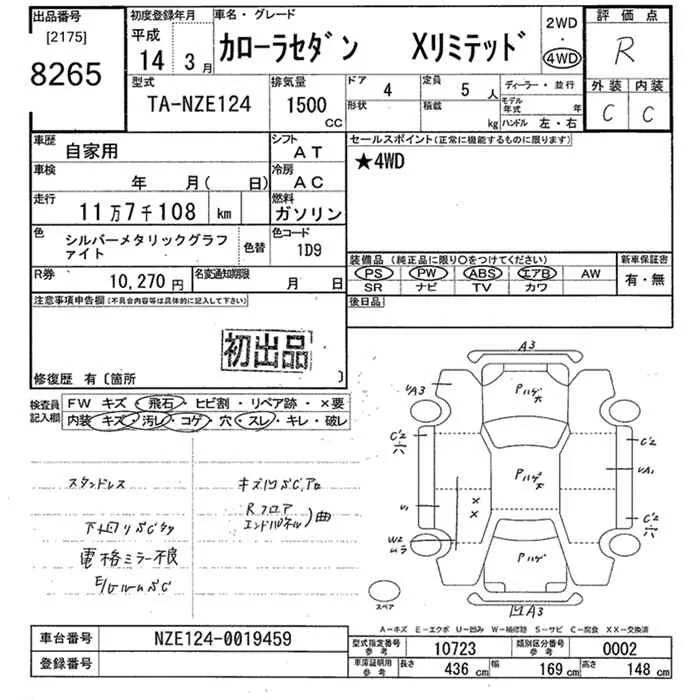 出品番号
[2175]
8265
初度登録年月
平成
14 3月
車名・グレード
カローラセダン Xリミテッド
2WD
・
4WD
評価点
R
外装 内装
C C
型式
TA-NZE124
排気量
1500
CC
ドア
4
定員
5人
形状
積載
kg
ディーラー・並行
モデル年式 年
ハンドル 左・右
車歴
自家用
シフト
AT
セールスポイント(正常に機能するものに限ります)
★4WD
車検
年 月( 日)
冷房
AC
走行
11万7千108 km
燃料
ガソリン
色
シルバーメタリックグラファイト
色替
色コード
1D9
装備品(純正品に限り○をつけてください)
新車保証書
PS PW ABS エアB AW
有・無
SR ナビ TV カワ
R券
10,270円
名変通知期限
月 日
後日品
注意事項申告欄(不具合内容等は具体的に記入して下さい)
初出品
修復歴 有〔箇所 〕
検査員記入欄
FW キズ・飛石・ヒビ割・リペア跡・×要
内装・キズ・汚れ・コゲ・穴・スレ・キレ・破レ
スタンドレス
キズ凹
Rフロア
エンドパネル)曲
電格ミラー不良
A3
Pハゲ大
A3
C2
Pハゲ大
A1
W2
C2
Pハゲ
スペア
凹A3
A−キズ E−エクボ U−凹み W−補修跡 S−サビ C−腐食 XX−交換済
車台番号
NZE124-0019459
型式指定番号参考
10723
類別区分番号参考
0002
登録番号
車庫証明用参考
長さ 436cm
幅 169cm
高さ 148cm